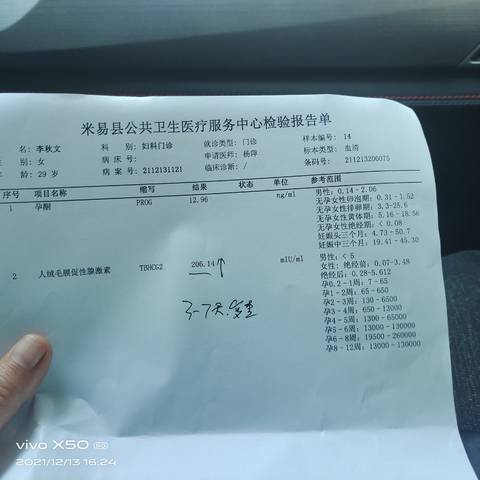 米易县公共卫生医疗服务中心检验报告单
名: 李秋文 科 别: 妇科门诊 就诊类型: 门诊 样本编号: 14
别: 女 病 床 号: 申请医师: 杨萍 标本类型: 血清
龄: 29 岁 病 案 号: 2112131121 临床诊断: / 条码号: 211213200075
序号 项目名称 缩写 结果 状态 单位 参考范围
1 孕酮 PROG 12.96 ng/ml 男性: 0.14 - 2.06
无孕女性卵泡期: 0.31 - 1.52
无孕女性排卵期: 3.3-25.6
无孕女性黄体期: 5.16 - 18.56
无孕女性绝经期: < 0.08
妊娠头三个月: 4.73 - 50.7
妊娠中三个月: 19.41 - 45.30
2 人绒毛膜促性腺激素 TBHCG2 206.14↑ mIU/ml 男性: < 5
女性: 绝经前: 0.07-3.48
绝经后: 0.28-5.612
孕0.2-1周: 7 - 65
孕1-2周: 65-650
孕2-3周: 130-6500
孕3-4周: 650-13000
孕4-5周: 1300-65000
孕5-6周: 13000-130000
孕6-8周: 19500-260000
孕8-12周: 13000-130000
3-7天.复查
vivo X50 5G
2021/12/13 16:24